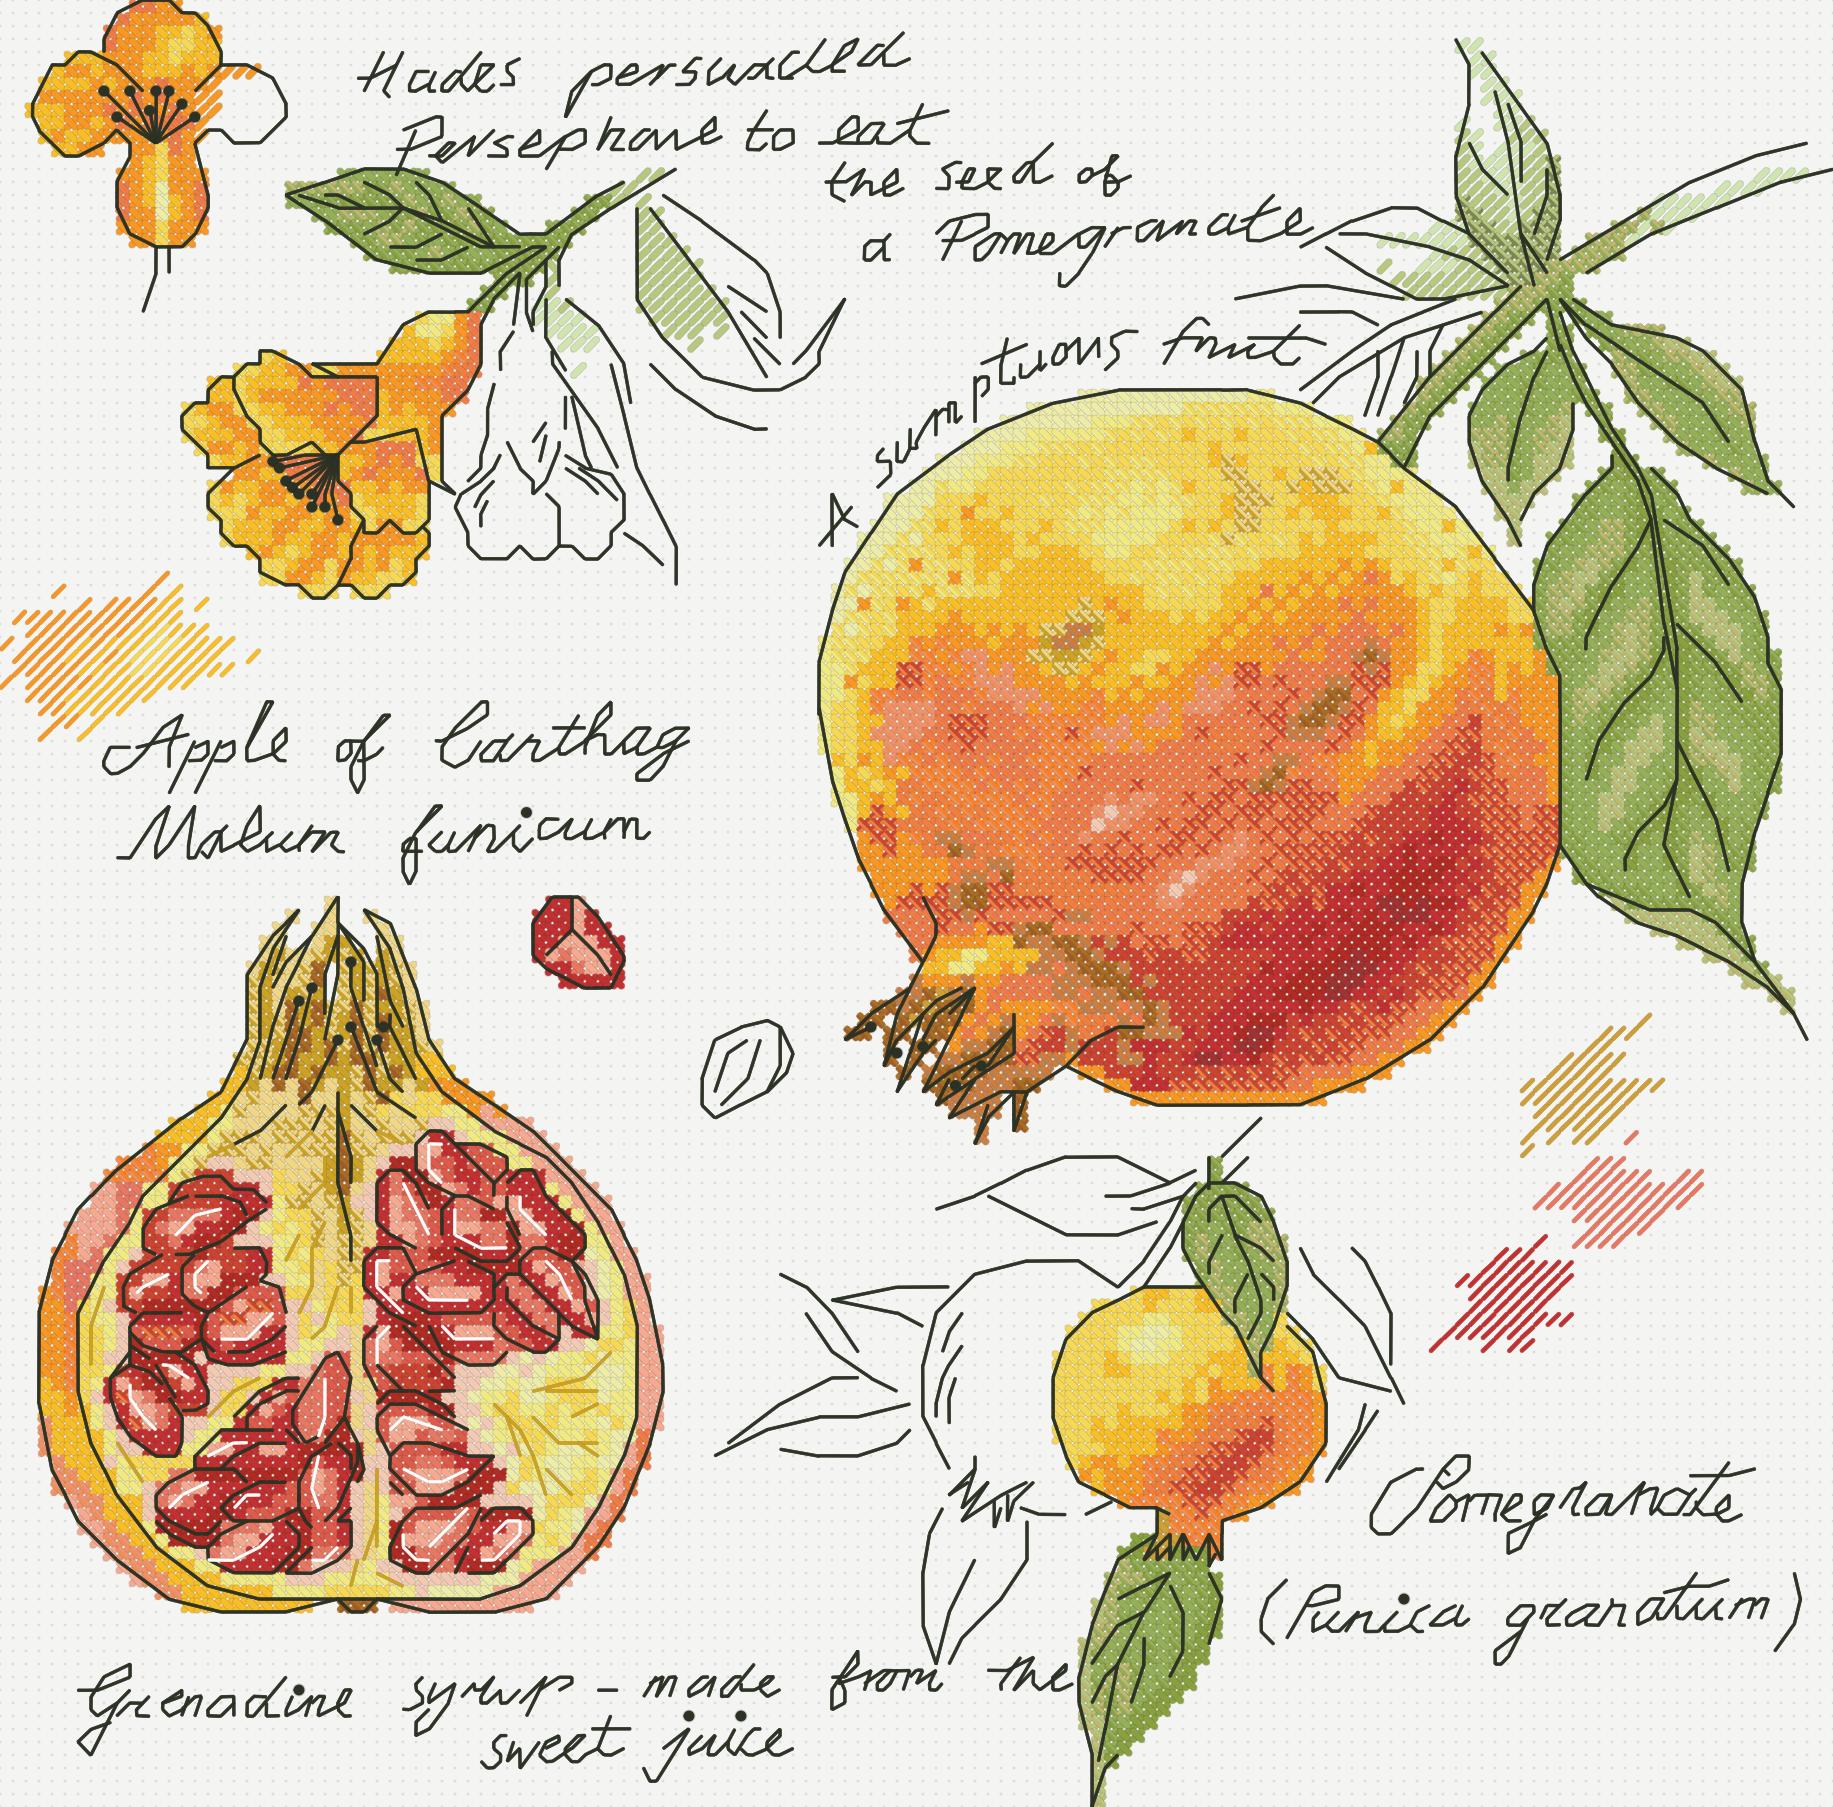 Hades persuaded
Persephone to eat
the seed of
a Pomegranate
A sumptuous fruit
Apple of Carthag
Malum funicum
Pomegranate
(Punica granatum)
Grenadine syrup - made from the
sweet juice